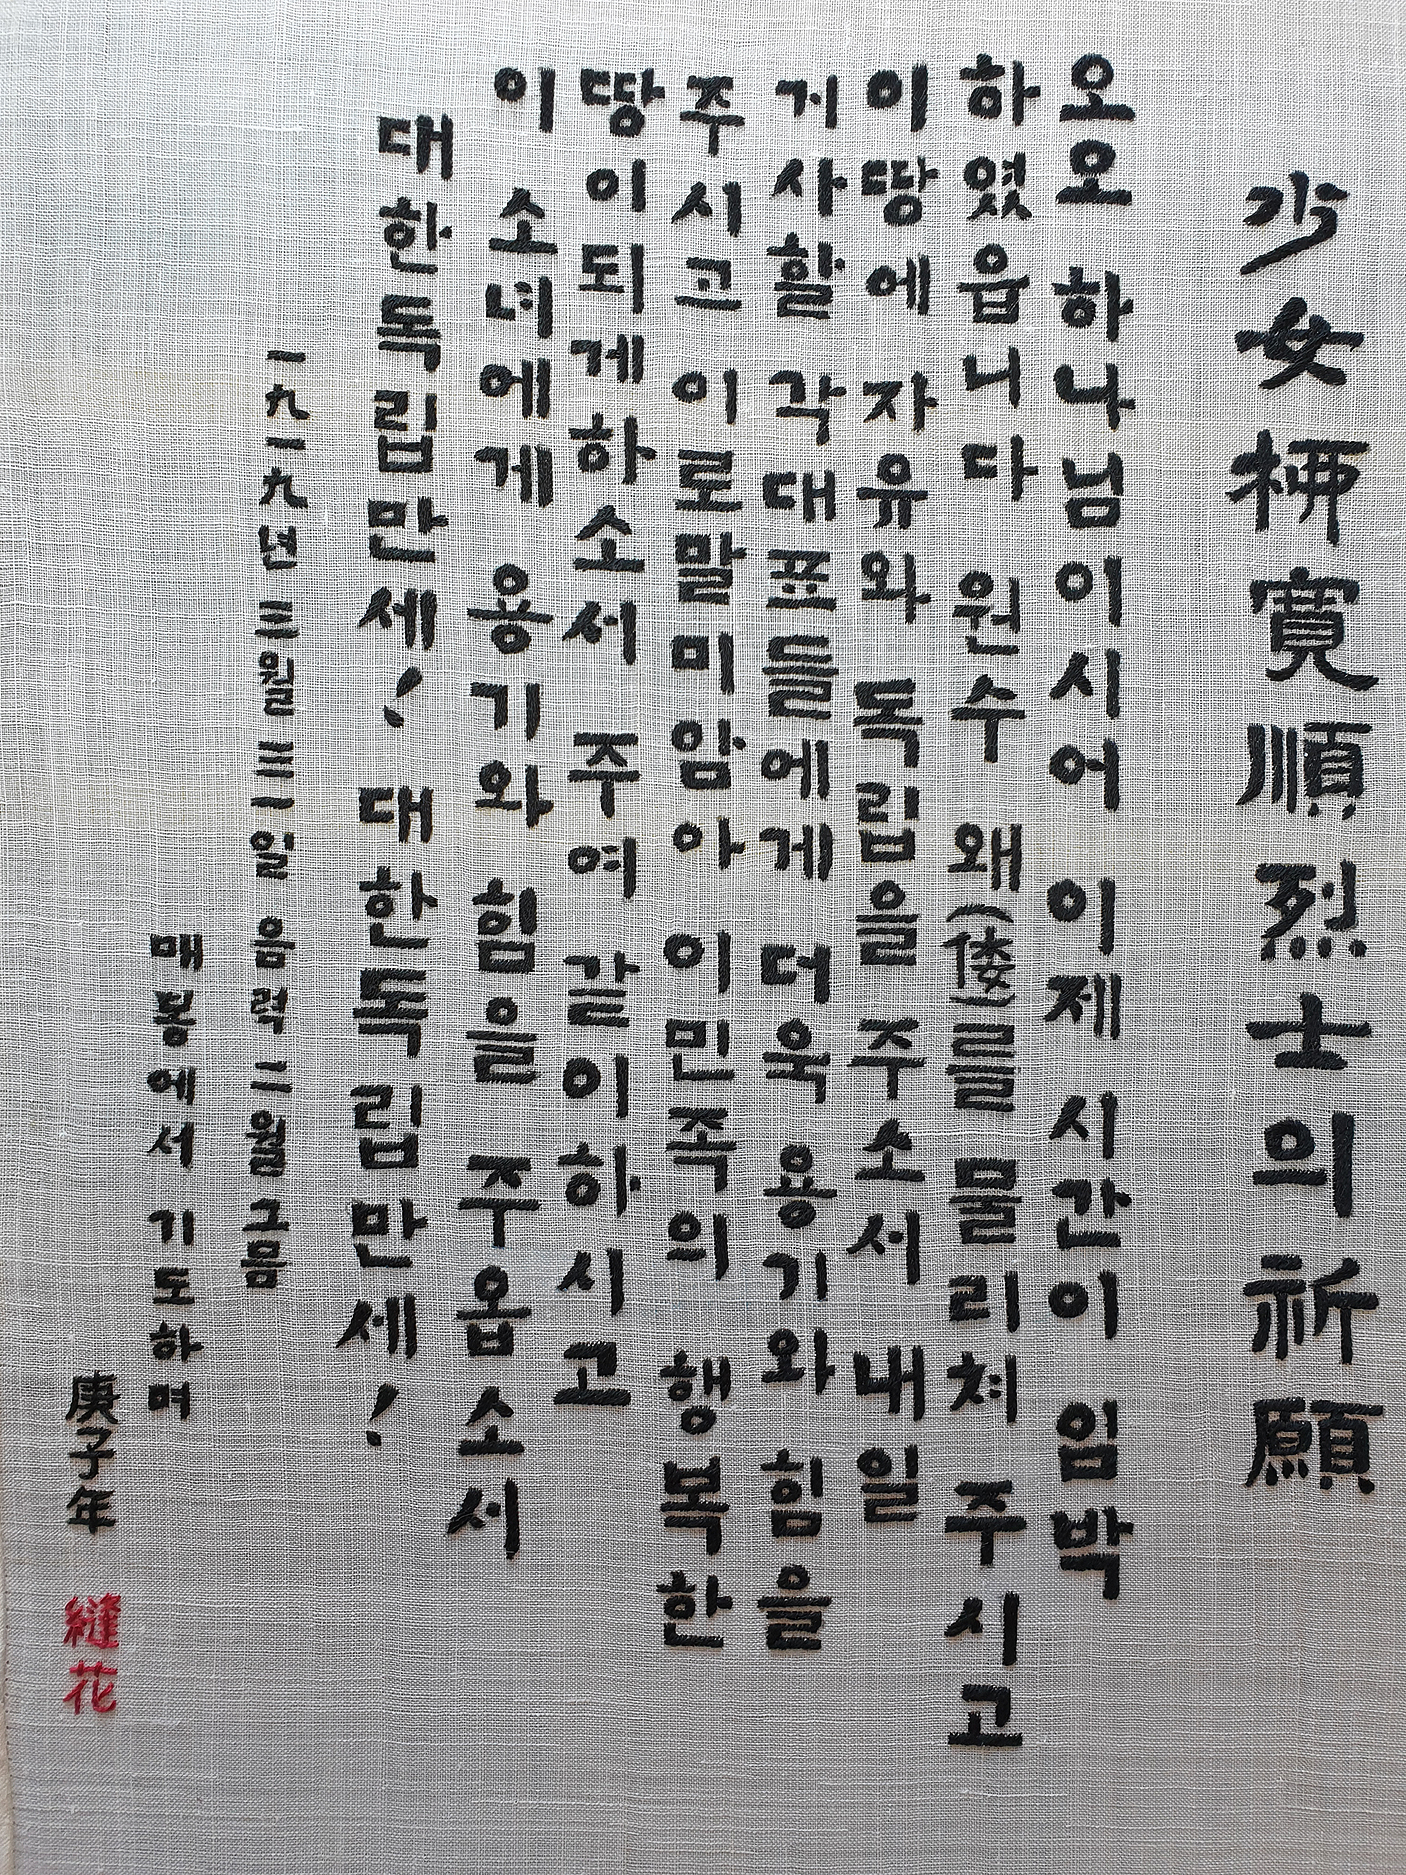 少女柳寬順烈士의 祈願
오오 하나님이시어 이제 시간이 임박
하였읍니다 원수 왜(倭)를 물리쳐 주시고
이땅에 자유와 독립을 주소서 내일
거사할 각대표들에게 더욱 용기와 힘을
주시고 이로말미암아 이민족의 행복한
땅이되게하소서 주여 같이하시고
이 소녀에게 용기와 힘을 주옵소서
대한독립만세! 대한독립만세!
一九一九년 三월 三一일 음력 二월 그믐
매봉에서 기도하며
庚子年 縫花